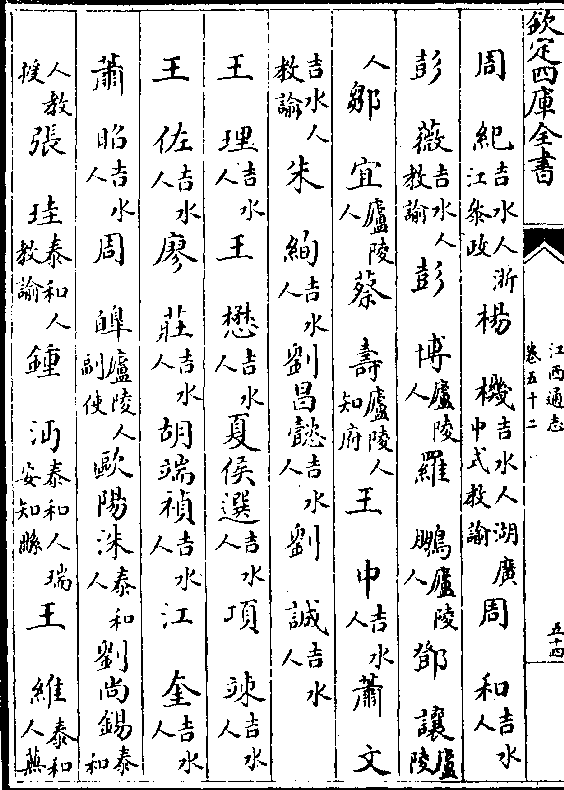 欽定四庫全書
江西通志
卷五十二
五十四
周紀吉水人浙江參政楊機吉水人湖廣中式教諭周和吉水人
彭薇吉水人教諭彭博廬陵人羅鵬廬陵人鄧讓廬陵
人鄒宜廬陵人蔡壽廬陵人知府王中吉水人蕭文
吉水人教諭朱絢吉水人劉昌懿吉水人劉誠吉水人
王理吉水人王懋吉水人夏侯選吉水人項竦吉水人
王佐吉水人廖莊吉水人胡端禎吉水人江奎吉水人
蕭昭吉水人周皞廬陵人副使歐陽洙泰和人劉尚錫泰和
人教授張珪泰和人教諭鍾沔泰和人瑞安知縣王維泰和人蕪